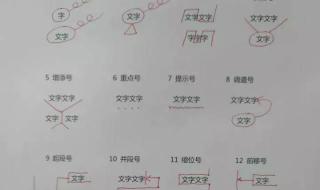 字
文字
文字
文字
字字
文字
5 增添号 6 重点号 7 提示号 8 调遣号
文字文字 文字文字 文字文字 文字文字
文字 文字 文字
9 起段号 10 并段号 11 缩位号 12 前移号
文字 文字文字 文字文字 文字